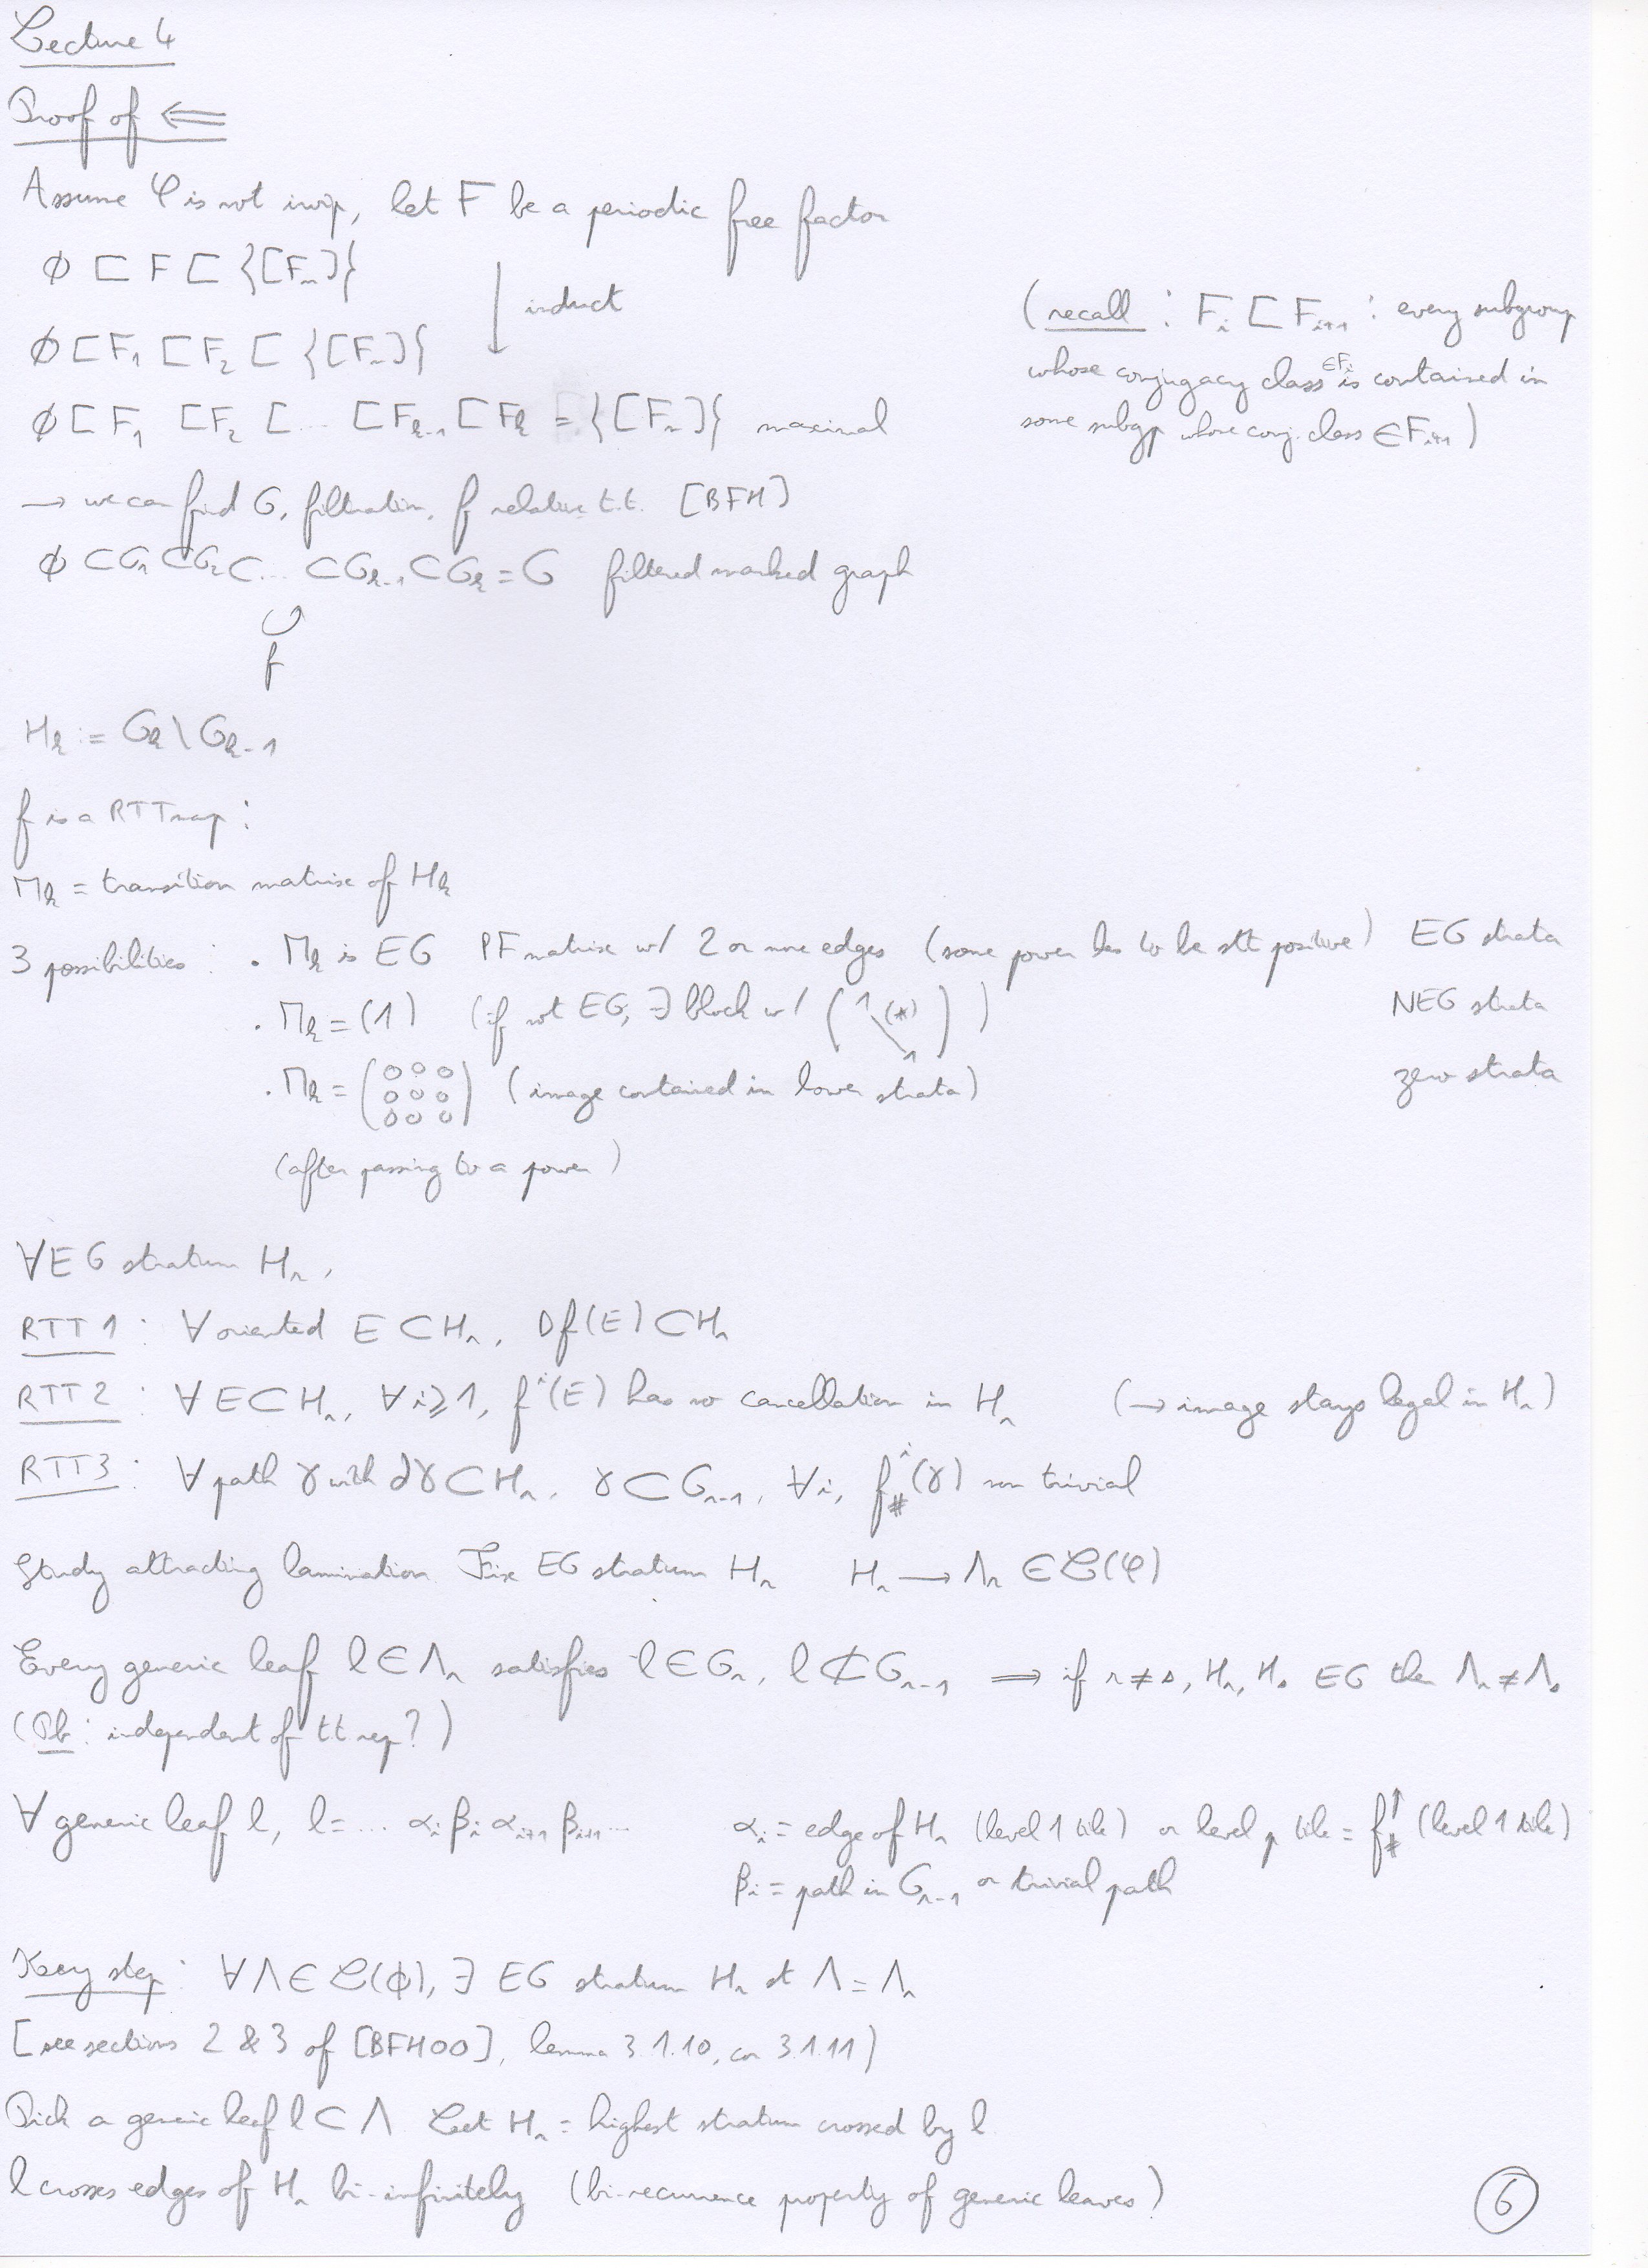 Lecture 4
Proof of ⇐
Assume φ is not iwip, let F be a periodic free factor
∅ ⊏ F ⊏ {[F_n]}
↓ induct
(recall : F_i ⊏ F_{i+1} : every subgroup
∅ ⊏ F_1 ⊏ F_2 ⊏ {[F_n]}
whose conjugacy class ∈F_i is contained in
∅ ⊏ F_1 ⊏ F_2 ⊏ ... ⊏ F_{k-1} ⊏ F_k = {[F_n]} maximal
some subgp whose conj. class ∈ F_{i+1})
→ we can find G, filtration, f relative t.t. [BFH]
∅ ⊂ G_1 ⊂ G_2 ⊂ ... ⊂ G_{k-1} ⊂ G_k = G filtered marked graph
↺
f
H_k := G_k \ G_{k-1}
f is a RTT map :
M_k = transition matrix of H_k
3 possibilities : . M_k is EG PF matrix w/ 2 or more edges (some power has to be stt positive) EG strata
. M_k = (1) (if not EG, ∃ block w/ (1 (*) \ 1)) NEG strata
. M_k = (0 0 0 / 0 0 0 / 0 0 0) (image contained in lower strata) zero strata
(after passing to a power)
∀ EG stratum H_r,
RTT 1 : ∀ oriented E ⊂ H_r, Df(E) ⊂ H_r
RTT 2 : ∀ E ⊂ H_r, ∀ i ≥ 1, f^i(E) has no cancellation in H_r (→ image stays legal in H_r)
RTT 3 : ∀ path γ with ∂γ ⊂ H_r, γ ⊂ G_{r-1}, ∀ i, f^i_#(γ) non trivial
Study attracting lamination. Fix EG stratum H_r H_r → Λ_r ∈ L(φ)
Every generic leaf l ∈ Λ_r satisfies l ∈ G_r, l ⊄ G_{r-1} ⟹ if r ≠ s, H_r, H_s EG then Λ_r ≠ Λ_s
(Pb : independent of tt rep?)
∀ generic leaf l, l = ... α_i β_i α_{i+1} β_{i+1} ... α_i = edge of H_r (level 1 tile) or level p tile = f^p_# (level 1 tile)
β_i = path in G_{r-1} or trivial path
Key step : ∀ Λ ∈ L(ϕ), ∃ EG stratum H_r st Λ = Λ_r
[see sections 2 & 3 of [BFH00], lemma 3.1.10, cor 3.1.11)
Pick a generic leaf l ⊂ Λ Let H_r = highest stratum crossed by l
l crosses edges of H_r bi-infinitely (bi-recurrence property of generic leaves)
6